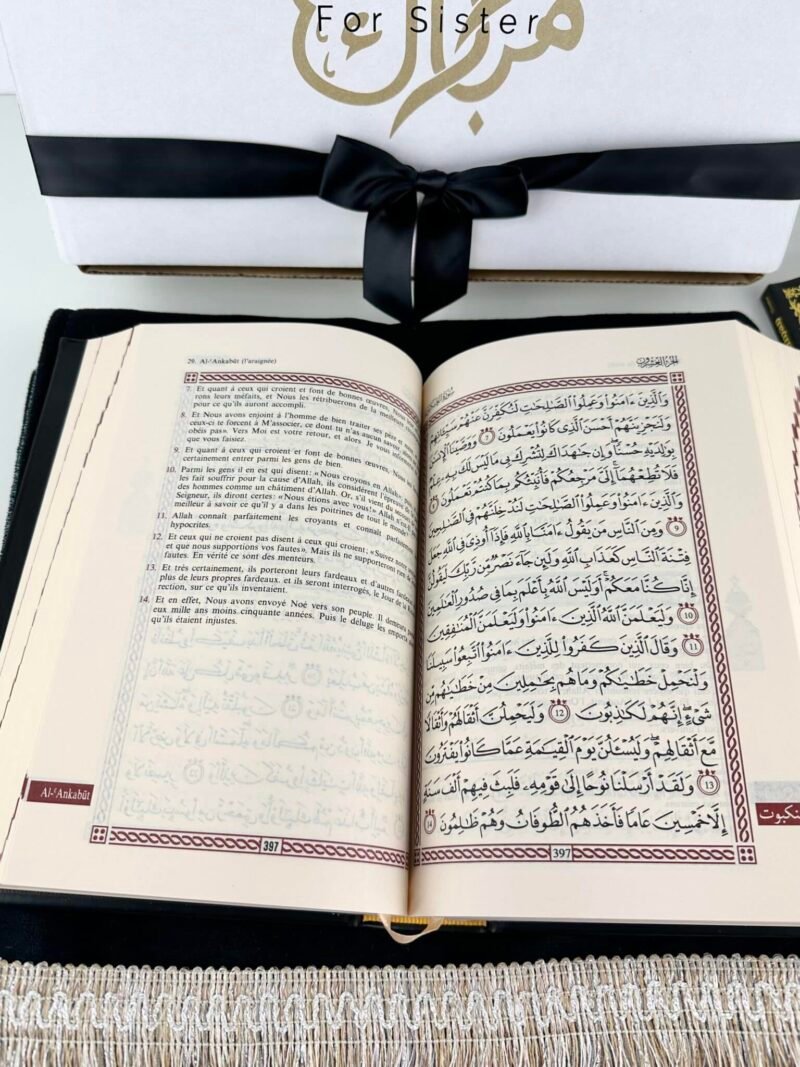 For Sister
مبارك
29. Al-ʿAnkabût (l'araignée)
7. Et quant à ceux qui croient et font de bonnes œuvres, Nous
rons leurs méfaits, et Nous les rétribuerons de la meilleure
pour ce qu'ils auront accompli.
8. Et Nous avons enjoint à l'homme de bien traiter ses père et
ceux-ci te forcent à M'associer, ce dont tu n'as aucun savoir,
obéis pas». Vers Moi est votre retour, et alors Je vous
que vous faisiez.
9. Et quant à ceux qui croient et font de bonnes œuvres, Nous
certainement entrer parmi les gens de bien.
10. Parmi les gens il en est qui disent: «Nous croyons en Allah»;
les fait souffrir pour la cause d'Allah, ils considèrent l'épreuve de
des hommes comme un châtiment d'Allah. Or, s'il vient du secours
Seigneur, ils diront certes: «Nous étions avec vous!» Allah n'est-Il
meilleur à savoir ce qu'il y a dans les poitrines de tout le monde?
11. Allah connaît parfaitement les croyants et connaît parfaitement
hypocrites.
12. Et ceux qui ne croient pas disent à ceux qui croient: «Suivez notre
et que nous supportions vos fautes». Mais ils ne supporteront rien de
fautes. En vérité ce sont des menteurs.
13. Et très certainement, ils porteront leurs fardeaux et d'autres fardeaux
plus de leurs propres fardeaux. et ils seront interrogés, le Jour de la
rection, sur ce qu'ils inventaient.
14. Et en effet, Nous avons envoyé Noé vers son peuple. Il demeura parmi
eux mille ans moins cinquante années. Puis le déluge les emporta
qu'ils étaient injustes.
Al-ʿAnkabût
397
الجزء العشرون
وَٱلَّذِينَ ءَامَنُوا۟ وَعَمِلُوا۟ ٱلصَّٰلِحَٰتِ لَنُكَفِّرَنَّ عَنْهُمْ سَيِّـَٔاتِهِمْ
وَلَنَجْزِيَنَّهُمْ أَحْسَنَ ٱلَّذِى كَانُوا۟ يَعْمَلُونَ 7 وَوَصَّيْنَا ٱلْإِنسَٰنَ
بِوَٰلِدَيْهِ حُسْنًا وَإِن جَٰهَدَاكَ لِتُشْرِكَ بِى مَا لَيْسَ لَكَ بِهِۦ عِلْمٌ
فَلَا تُطِعْهُمَآ إِلَىَّ مَرْجِعُكُمْ فَأُنَبِّئُكُم بِمَا كُنتُمْ تَعْمَلُونَ 8
وَٱلَّذِينَ ءَامَنُوا۟ وَعَمِلُوا۟ ٱلصَّٰلِحَٰتِ لَنُدْخِلَنَّهُمْ فِى ٱلصَّٰلِحِينَ
9 وَمِنَ ٱلنَّاسِ مَن يَقُولُ ءَامَنَّا بِٱللَّهِ فَإِذَآ أُوذِىَ فِى ٱللَّهِ جَعَلَ
فِتْنَةَ ٱلنَّاسِ كَعَذَابِ ٱللَّهِ وَلَئِن جَآءَ نَصْرٌ مِّن رَّبِّكَ لَيَقُولُنَّ
إِنَّا كُنَّا مَعَكُمْ أَوَلَيْسَ ٱللَّهُ بِأَعْلَمَ بِمَا فِى صُدُورِ ٱلْعَٰلَمِينَ
10 وَلَيَعْلَمَنَّ ٱللَّهُ ٱلَّذِينَ ءَامَنُوا۟ وَلَيَعْلَمَنَّ ٱلْمُنَٰفِقِينَ
11 وَقَالَ ٱلَّذِينَ كَفَرُوا۟ لِلَّذِينَ ءَامَنُوا۟ ٱتَّبِعُوا۟ سَبِيلَنَا
وَلْنَحْمِلْ خَطَٰيَٰكُمْ وَمَا هُم بِحَٰمِلِينَ مِنْ خَطَٰيَٰهُم مِّن
شَىْءٍ إِنَّهُمْ لَكَٰذِبُونَ 12 وَلَيَحْمِلُنَّ أَثْقَالَهُمْ وَأَثْقَالًا
مَّعَ أَثْقَالِهِمْ وَلَيُسْـَٔلُنَّ يَوْمَ ٱلْقِيَٰمَةِ عَمَّا كَانُوا۟ يَفْتَرُونَ
13 وَلَقَدْ أَرْسَلْنَا نُوحًا إِلَىٰ قَوْمِهِۦ فَلَبِثَ فِيهِمْ أَلْفَ سَنَةٍ
إِلَّا خَمْسِينَ عَامًا فَأَخَذَهُمُ ٱلطُّوفَانُ وَهُمْ ظَٰلِمُونَ 14
397